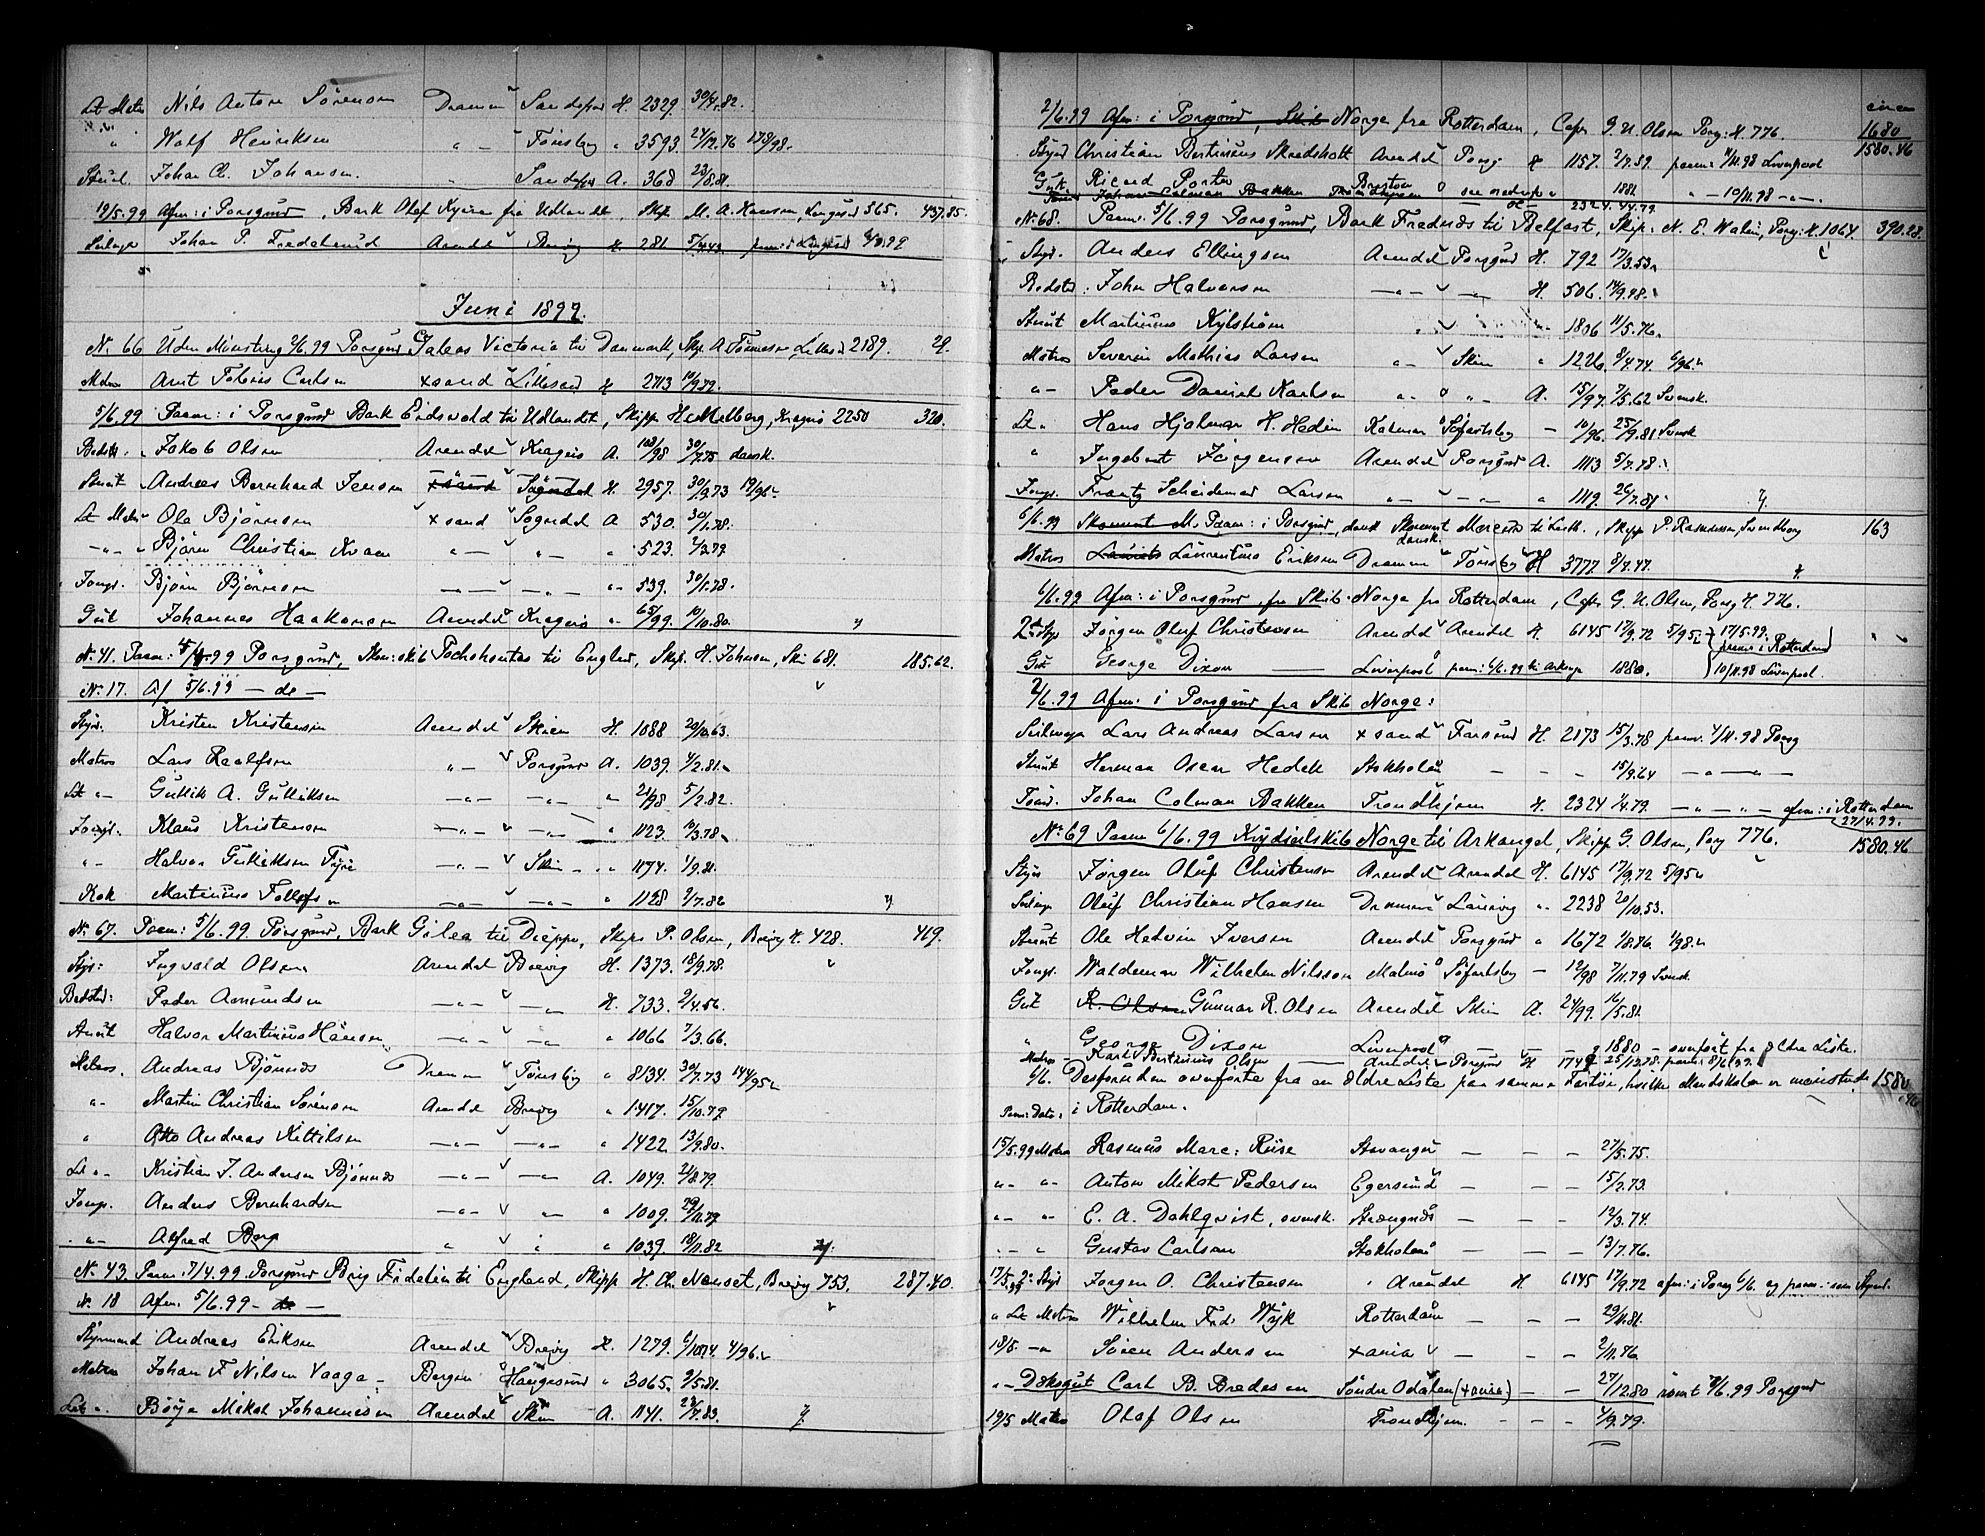 Lt Matr Nils Anton Sörensen Dramm Sandefjord H. 2329. 30/4.82.
" Wolf Henriksen " — Tönsberg " 3593. 24/12.76 178/98.
Johan Ch. Johansen " Sandefj A. 368 23/8.81.
19/5.99 Afm: i Porsgrund, Bark Olaf Kyrre fra Udlandet, Skip. M. A. Hansen, 365. 437.85.
Johan P. Fredeberg Arendal Brevig H. 281.
Juni 1899.
No. 66 Uden Mönstring 2/6.99 Porsgrund Galeas Victoria til Danmark, Skp. A. Tönnesen, Lillesand 2189. 29.
Matros Arnt Tobias Carlsen Xsand Lillesand H 2713 10/9.79.
5/6.99 Paam: i Porsgrund Bark Eidsvold til Udlandet, Skipp H. Melberg, Kragerö 2250 320.
Bedstk. Jakob Olsen Arendal Kragerö A. 108/98 30/7.75 dansk.
Stuert Andreas Bernhard Jensen Xsand Sogndal H. 2957. 30/9.73 19/96.
Lt Matr Ole Björnsen Xsand Sogndal A 530. 30/1.78.
— " — Björn Christian Kvam " — " — " 523. 2/3.79
Jungm. Björn Björnsen — " — — " — " 539. 30/1.78.
Gut Johannes Haakonsen Arendal Kragerö " 65/99. 10/10.80.
No. 41. Paam: 5/4.99 Porsgrund, Skon:skib Pochohontas til England, Skip. H. Johnsen, Skien 681. 185.62.
No. 17. Af 5/6.99 — do —
Styr. Kristen Kristensen Arendal Skien H. 1088 20/10.63.
Matros Lars Raolfsen " — Porsgrund A. 1039. 4/2.81.
Lt " — Gullik A. Gulliksen — " — — " — " 21/98 5/2.82.
Jungm. Klaus Kristensen — " — — " — " 1123. 10/3.78.
" — Halvor Gulliksen Fyri — " — Skien " 1174. 1/9.81.
Kok Martinius Tollefsen — " — — " — " 1128 2/7.82
No. 67. Paam: 5/6.99. Porsgrund, Bark Gilea til Dieppe, Skipr P. Olsen, Brevig H. 428. 419.
Styr: Ingvald Olsen Arendal Brevig H. 1373. 18/9.78.
Bedstm: Peder Amundsen — " — — " — H. 733. 2/4.56.
Stuert Halvor Martinius Hansen — " — — " — " 1066 7/3.66.
Matros. Andreas Björnnes Dramm Tönsberg " 8134. 30/7.73 144/95
" — Martin Christian Sörensen Arendal Brevig " 1417. 15/10.79.
" Otto Andreas Kittilsen — " — — " — " 1422. 13/9.80.
Lt " — Kristian J. Andersen Björnnes — " — — " — A. 1049. 21/8.79.
Jungm. Anders Bernhardsen — " — " — " 1009. 29/11.79
" — Alfred Berg " " " 1039. 18/11.82
No. 43. Paam: 7/4.99. Porsgrund Brig Fidelia til England, Skipp H. Chr. Nenset, Brevig 753. 287.40.
No. 18 Afm. 5/6.99 — do —
Styrmand Andreas Eriksen Arendal Brevig H. 1279. 6/10.74. 4/96.
Matros Johan F. Nilsen Vaaga Bergen Haugesund " 3065. 2/5.81.
Lt " Börje Mikal Johannesen Arendal Skien A. 1141. 28/7.83.
2/6.99 Afm: i Porsgrund, Skib Norge fra Rotterdam, Capt. G. U. Olsen Porsg: H. 776. 1680
Styrd Christian Bertinius Skredshall Arendal Porsg H 1157. 2/7.59. paam: 4/11.98 Liverpool 1580.46
Gut. Ricard Porter Boston " 1882 " — 10/11.98 — " —.
Johan Colman Bakken 2324. 4/4.79.
No. 68. Paam: 5/6.99 Porsgrund, Bark Fredensb til Belfast, Skip. N. E. Walin, Porsg: H. 1064. 390.28.
Styrd. Anders Ellingsen Arendal Porsgrund H. 792 17/3.53.
Bedstm. John Halvorsen — " — — " — H. 506. 14/9.48.
Stuert Martinius Kylström " " 1806 11/5.76.
Matros Severin Mathias Larsen " — Skien " 1226. 8/4.74 6/96.
" — Peder Daniel Karlsen " — " — A. 15/97. 7/5.62 Svensk.
Lt " Hans Hjalmar H. Hedin Kalmar Söfartsbg — 10/96. 25/9.81 Svensk
" Ingebret Jörgensen Arendal Porsgrund A. 1113 5/7.78.
Jungm. Frantz Scheidemad Larsen " — — " — " 1119. 26/7.81
6/6.99 Skonnert M. Paam: i Porsgrund, dansk Skonnert Mercur til Leith, Skipp P. Rasmussen, Svendborg 163
Matros Lauritz Laurentius Eriksen Dramm Tönsberg H 3777. 8/7.47.
6/6.99 Afm: i Porsgrund, fra Skib Norge fra Rotterdam, Capt G. U. Olsen, Porsg H. 776.
2den Styr Jörgen Oluf Christensen Arendal Arendal H. 6145 17/9.72 5/95. 17/5.99. paam: i Rotterdam
Gut George Dixon — Liverpool paam: 6/6.99 til Arkang. 1880. 10/11.98 Liverpool.
2/6.99 Afm: i Porsgrund fra Skib Norge:
Seilmager Lars Andreas Larsen Xsand Farsund H. 2173 15/3.78 paam. 4/11.98 Porsg
Stuert Herman Oscar Hedek Stokholm — — — 15/9.64 — " — " —
Tömd. Johan Colman Bakken Trondhjem H. 2324 4/4.79. — " — " — afm: i Rotterdam 27/4.99.
No. 69 Paam 6/6.99 Krydseilskib Norge til Arkangel, Skipp G. Olsen, Porsg 776. 1580.46
Styrm Jörgen Oluf Christensen Arendal Arendal H. 6145 17/9.72 5/95
Seilmgr Oluf Christian Hansen Drammen Laurvig " 2238 20/10.53.
Stuert Ole Helvin Iversen Arendal Porsgrund " 1672 1/8.76. 1/98.
Jungm. Waldemar Wilhelm Nilsson Malmö Söfartsbg — 12/98 7/11.79 Svensk
Gut R. Olsen Gunnar R. Olsen Arendal Skien A. 24/99. 16/5.81.
" George Dixon Liverpool 1880 — overfört fra ældre Liste.
Matros Karl Bertinius Olsen — Arendal Porsgrund H 1749 25/12.78. paam: 8/6.99.
6/6. Desforuden overförte fra en Ældre Liste paa samme Fartöi, hvilke Mandskaber er mönstrede 1580.46
Paam: Dato: i Rotterdam.
15/5.99 Matros Rasmus Marc: Riise Stavanger — — — 27/5.75.
" — " — Anton Mikal Pedersen Egersund — — — 15/2.73.
" — " — E. A. Dahlqvist, svensk. Strengnäs — — — 12/3.74.
" — " Gustav Carlsen Stokholm — — — 13/7.76.
17/5.99 2: Styr Jörgen O. Christensen " Arendal H 6145 17/9.72 afm: i Porsg 6/6. og paam: som Styrmd.
" Lt Matros Wilhelm Frd: Wyk Rotterdam — — — 29/11.81.
18/5. — " Sören Andersen Xania — — — 2/11.76.
" — Dæksgut Carl B. Bredesen Sönder Odalen (Xania) — — 27/12.80 römt 2/6.99 Porsgrund
19/5 Matros Olaf Olsen Trondhjem. — — — 4/9.79.